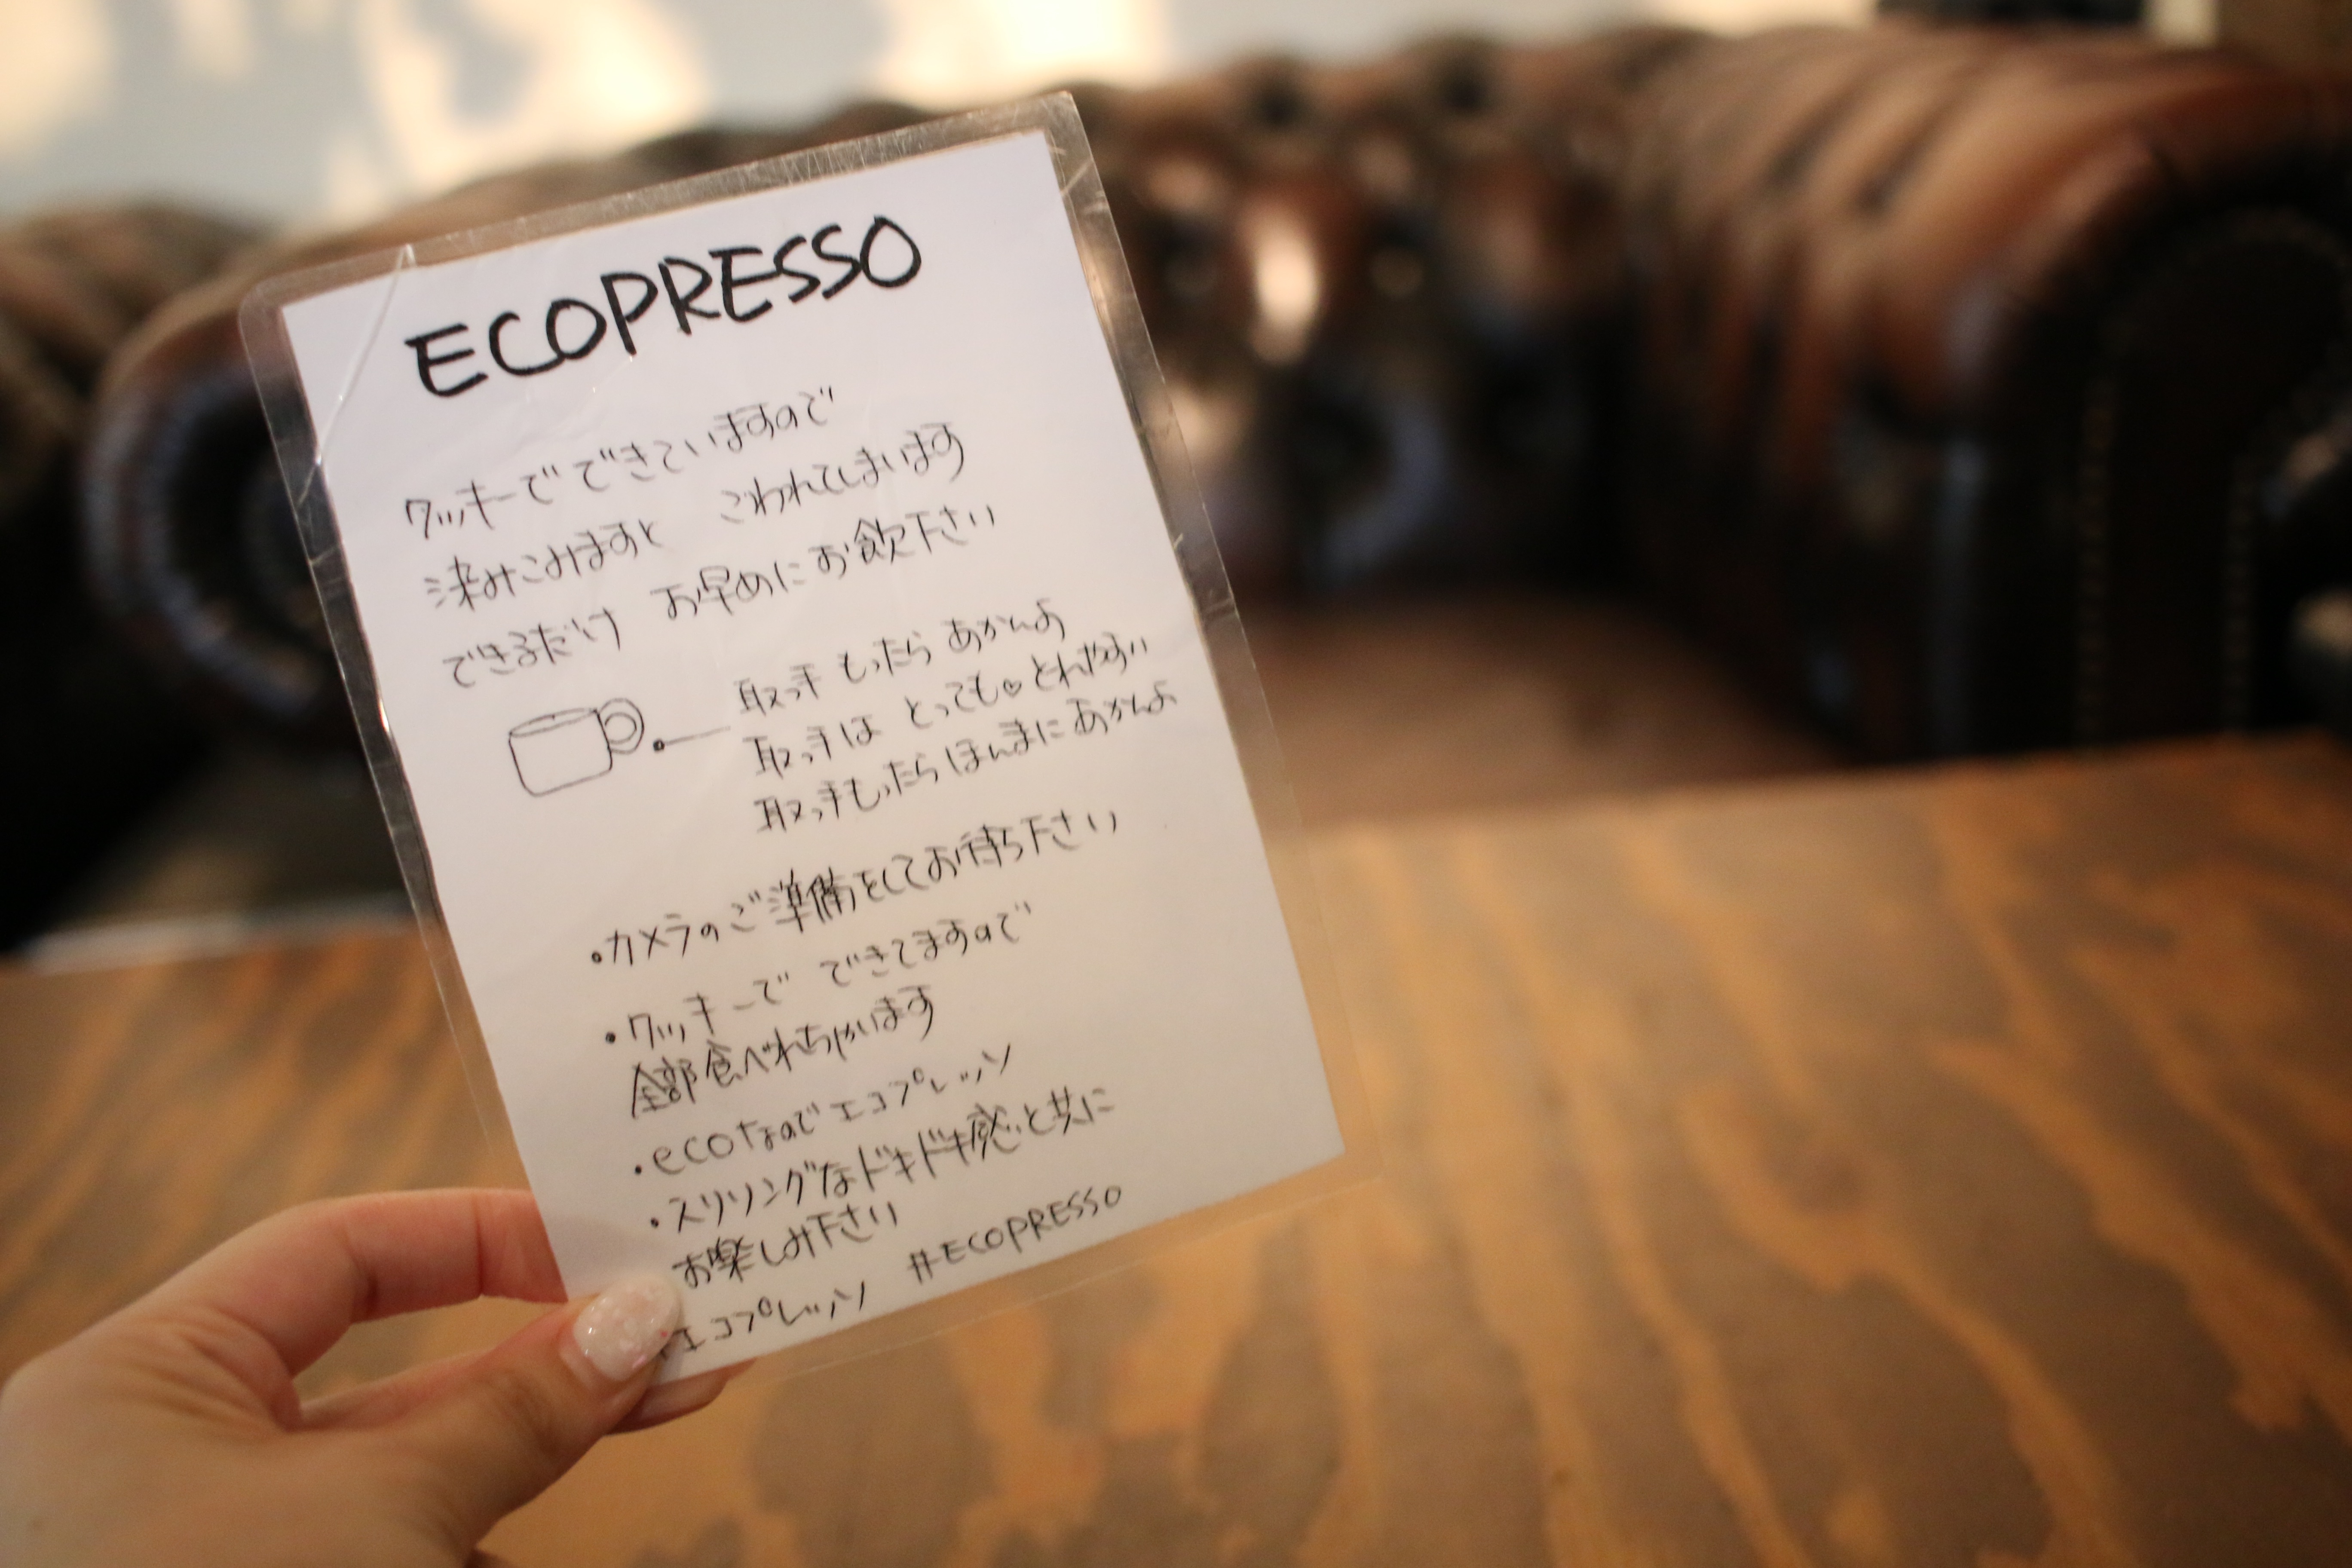 ECOPRESSO
クッキーでできていますので
染みこみますと こわれてしまいます
できるだけ お早めにお飲下さい
取っ手 もったら あかんよ
取っ手は とっても♡とれやすい
取っ手もったらほんまにあかんよ
・カメラのご準備をしてお待ち下さい
・クッキーで できてますので
全部食べれちゃいます
・ecoなのでエコプレッソ
・スリリングなドキドキ感と共に
お楽しみ下さい
#エコプレッソ #ECOPRESSO